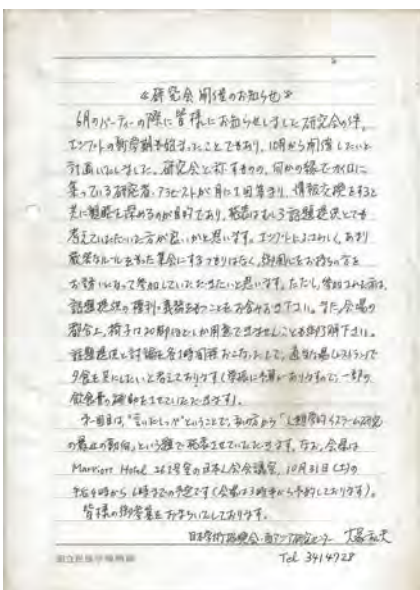 ≪研究会開催のお知らせ≫
6月のパーティーの際に皆様にお知らせしました研究会の件、
エジプトの新学期も始まったことでもあり、10月から開催したいと
計画いたしました。研究会と称すものの、何かの縁でカイロに
集っている研究者、アラビストが月に1回集まり、情報交換をすると
共に親睦を深めるのが目的であり、発表はむしろ話題提供とでも
考えていただいた方が良いかと思います。エジプトによろしく、あまり
厳密なルールを もった集会にするつもりはなく、御関心をお持ちの方を
お誘いになって参加していただきたいと思います。ただし、参加される方は、
話題提供の権利・義務をもつことをお含みおき下さい。また、会場の
都合上、椅子は20脚ほどしか用意できませんことも御了解下さい。
話題提供と討論を各1時間程おこないまして、適当な レストランで
夕食を共にしたいと考えております(学振に予算がありますので、一部の
飲食費の補助をさせていただきます)。
第一回目は、"言いだしっぺ"ということで、私の方から「人類学的イスラーム研究
の最近の動向」という題で発表させていただきます。なお、会場は
Marriott Hotel 262号室の日本人会会議室、10月31日(土)の
午后4時から6時までの予定です(会場は3時半から予約しております)。
皆様の御参集をお待ちいたしております。
日本学術振興会・西アジア研究センター 大塚和夫
Tel 3414728
国立民族学博物館